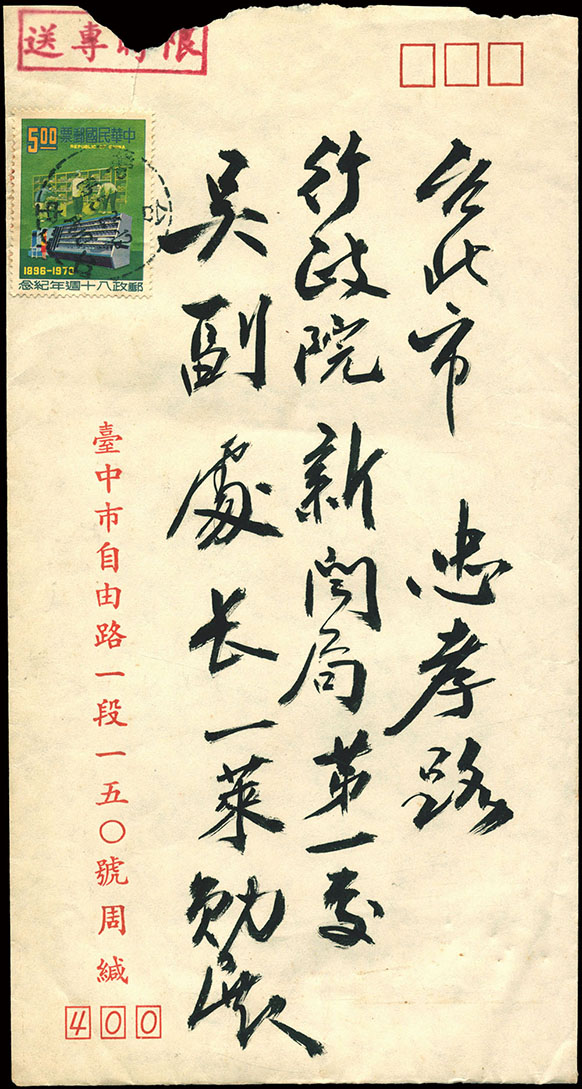 限時專送
中華民國郵票
5.00
REPUBLIC OF CHINA
1896-1976
郵政八十週年紀念
台北市 忠孝路
行政院新闻局第一处
吴副處长一萊勋啟
臺中市自由路一段一五〇號周緘
400